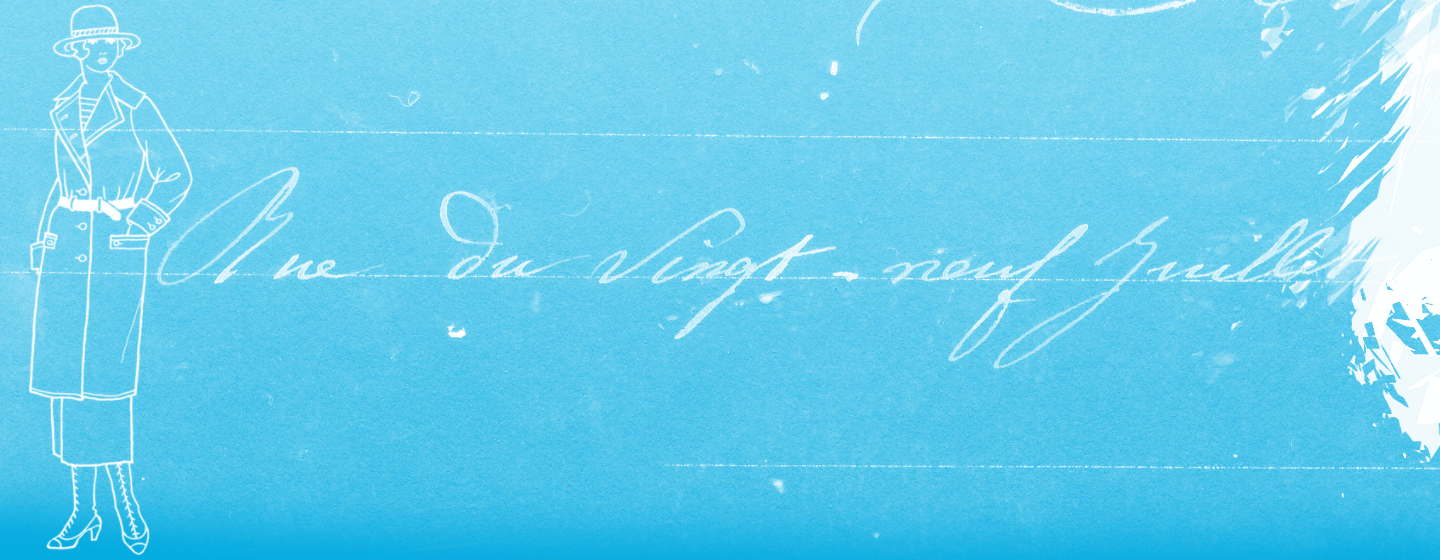 Rue du Vingt-neuf Juillet